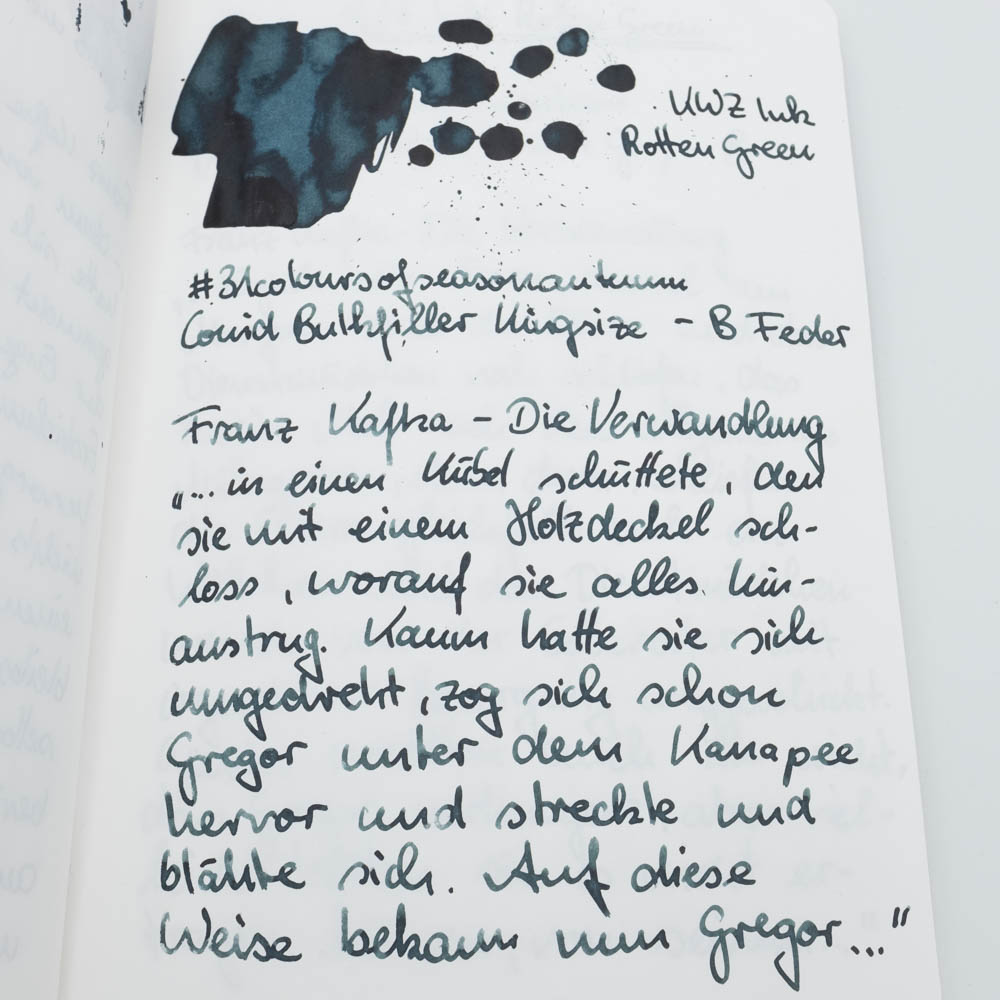 KWZ Ink
Rotten Green
#31coloursofseasonautumn
Conid Bulkfiller Kingsize - B Feder
Franz Kafka - Die Verwandlung
„... in einen Kübel schüttete, den
sie mit einem Holzdeckel sch-
loss, worauf sie alles hin-
austrug. Kaum hatte sie sich
umgedreht, zog sich schon
Gregor unter dem Kanapee
hervor und streckte und
blähte sich. Auf diese
Weise bekam nun Gregor ..."